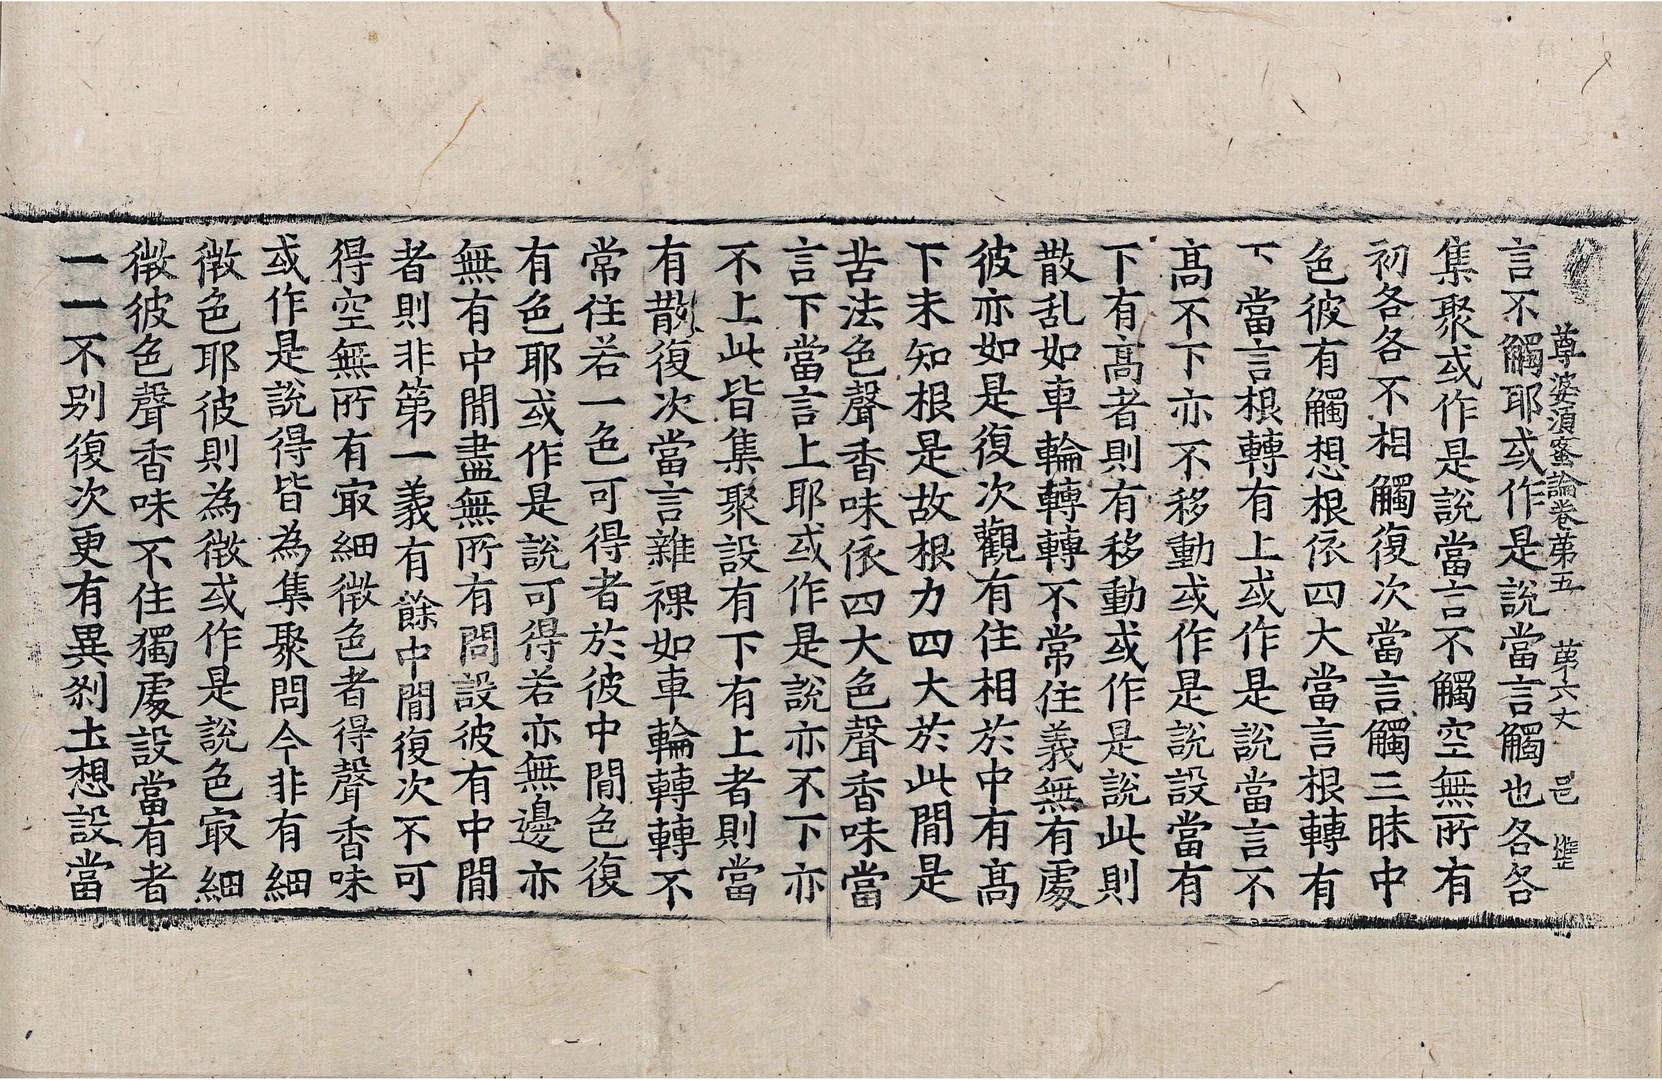 尊婆須蜜論卷第五 第六丈 邑
言不觸耶或作是說當言觸也各各
集聚或作是說當言不觸空無所有
初各各不相觸復次當言觸三昧中
色彼有觸想根依四大當言根轉有
下當言根轉有上或作是說當言不
高不下亦不移動或作是說設當有
下有高者則有移動或作是說此則
散乱如車輪轉轉不常住義無有處
彼亦如是復次觀有住相於中有高
下未知根是故根力四大於此間是
苦法色聲香味依四大色聲香味當
言下當言上耶或作是說亦不下亦
不上此皆集聚設有下有上者則當
有散復次當言雜稞如車輪轉轉不
常住若一色可得者於彼中間色復
有色耶或作是說可得若亦無邊亦
無有中間盡無所有問設彼有中間
者則非第一義有餘中間復次不可
得空無所有㝡細微色者得聲香味
或作是說得皆為集聚問今非有細
微色耶彼則為微或作是說色㝡細
微彼色聲香味不住獨處設當有者
一一不別復次更有異剎土想設當